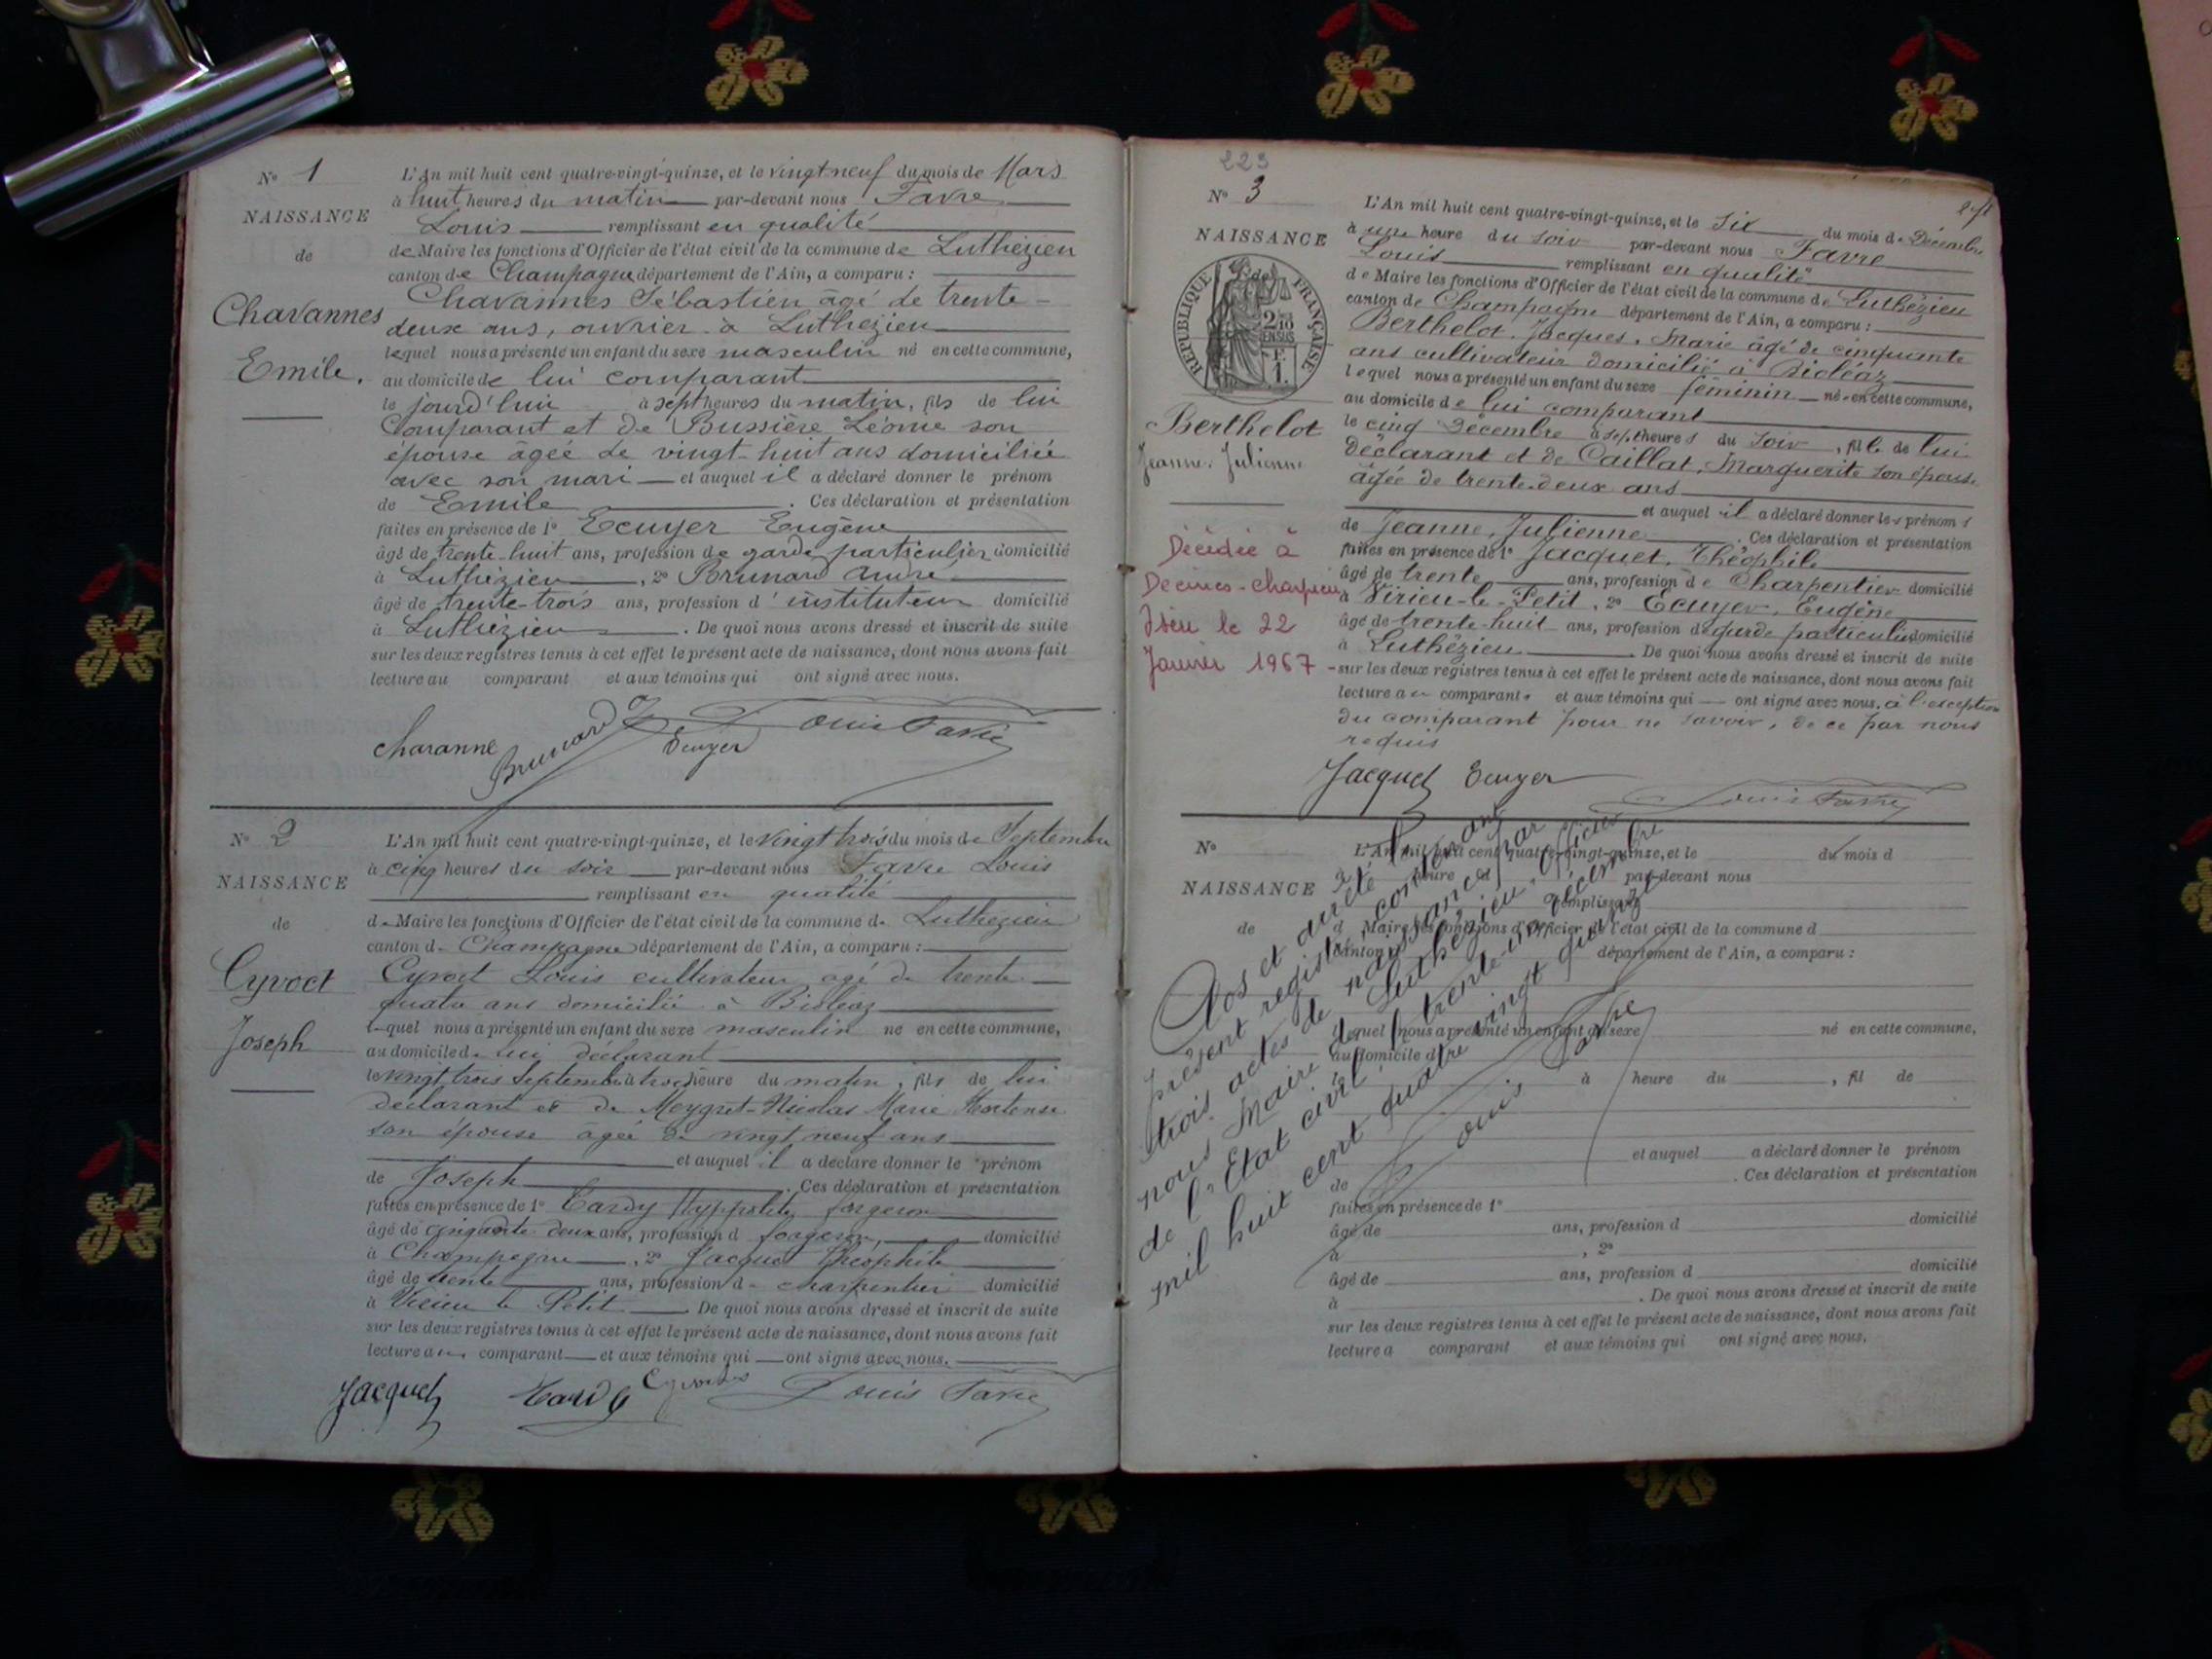 N° 1
NAISSANCE
de
Chavannes
Emile.
L'An mil huit cent quatre-vingt-quinze, et le vingt neuf du mois de Mars
à huit heures du matin par-devant nous Favre
Louis remplissant en qualité
de Maire les fonctions d'Officier de l'état civil de la commune de Luthézieu
canton de Champagne département de l'Ain, a comparu :
Chavannes Sébastien âgé de trente-
deux ans, ouvrier à Luthezieu
lequel nous a présenté un enfant du sexe masculin né en cette commune,
au domicile de lui comparant
le jourd'hui à sept heures du matin, fils de lui
Comparant et de Bussière Léonie son
épouse âgée de vingt-huit ans domiciliée
avec son mari et auquel il a déclaré donner le prénom
de Emile . Ces déclaration et présentation
faites en présence de 1° Ecuyer Eugène
âgé de trente-huit ans, profession de garde particulier domicilié
à Luthézieu , 2° Brunard André
âgé de trente-trois ans, profession d'instituteur domicilié
à Luthézieu . De quoi nous avons dressé et inscrit de suite
sur les deux registres tenus à cet effet le présent acte de naissance, dont nous avons fait
lecture au comparant et aux témoins qui ont signé avec nous.
Charanne Brunard Ecuyer Louis Favre
N° 2
NAISSANCE
de
Cyvoct
Joseph
L'An mil huit cent quatre-vingt-quinze, et le vingt trois du mois de Septembre
à cinq heures du soir par-devant nous Favre Louis
remplissant en qualité
de Maire les fonctions d'Officier de l'état civil de la commune de Luthezieu
canton de Champagne département de l'Ain, a comparu :
Cyvoct Louis cultivateur agé de trente
quatre ans domicilié à Bioléaz
lequel nous a présenté un enfant du sexe masculin né en cette commune,
au domicile de lui déclarant
le vingt trois Septembre à trois heure du matin, fils de lui
déclarant et de Meygret-Nicolas Marie Hortense
son épouse âgée de vingt neuf ans
et auquel il a déclaré donner le prénom
de Joseph . Ces déclaration et présentation
faites en présence de 1° Tardy Hyppolite forgeron
âgé de cinquante deux ans, profession d forgeron, domicilié
à Champagne , 2° Jacquet Théophile
âgé de trente ans, profession de charpentier domicilié
à Virieu le Petit . De quoi nous avons dressé et inscrit de suite
sur les deux registres tenus à cet effet le présent acte de naissance, dont nous avons fait
lecture au comparant et aux témoins qui ont signé avec nous.
Jacquet Tardy Cyvoct Louis Favre
223
N° 3
NAISSANCE
de
RÉPUBLIQUE FRANÇAISE
Berthelot
Jeanne. Julienne
Décédée à
Décines-charpieu
Isère le 22
Janvier 1967
L'An mil huit cent quatre-vingt-quinze, et le Six du mois de Décembre
à une heure du soir par-devant nous Favre
Louis remplissant en qualité
de Maire les fonctions d'Officier de l'état civil de la commune de Luthézieu
canton de Champagne département de l'Ain, a comparu :
Berthelot. Jacques. Marie âgé de cinquante
ans cultivateur domicilié à Bioléaz
lequel nous a présenté un enfant du sexe féminin né en cette commune,
au domicile de lui comparant
le cinq Décembre à sept heures du soir , fille de lui
déclarant et de Caillat, Marguerite son épouse
âgée de trente-deux ans
et auquel il a déclaré donner les prénoms
de Jeanne, Julienne . Ces déclaration et présentation
faites en présence de 1° Jacquet, Théophile
âgé de trente ans, profession de Charpentier domicilié
à Virieu-le-Petit , 2° Ecuyer, Eugène
âgé de trente-huit ans, profession de garde particulier domicilié
à Luthézieu . De quoi nous avons dressé et inscrit de suite
sur les deux registres tenus à cet effet le présent acte de naissance, dont nous avons fait
lecture au comparant et aux témoins qui ont signé avec nous, à l'exception
du comparant pour ne savoir, de ce par nous
requis
Jacquet Ecuyer Louis Favre
N°
NAISSANCE
de
L'An mil huit cent quatre-vingt-quinze, et le du mois d
à heure d par-devant nous
remplissant
d Maire les fonctions d'Officier de l'état civil de la commune d
canton d département de l'Ain, a comparu :
lequel nous a présenté un enfant du sexe né en cette commune,
au domicile d
le à heure du , fil de
et auquel a déclaré donner le prénom
de . Ces déclaration et présentation
faites en présence de 1°
âgé de ans, profession d domicilié
à , 2°
âgé de ans, profession d domicilié
à . De quoi nous avons dressé et inscrit de suite
sur les deux registres tenus à cet effet le présent acte de naissance, dont nous avons fait
lecture a comparant et aux témoins qui ont signé avec nous.
Clos et arrêté le
présent registre contenant
trois actes de naissance par
nous Maire de Luthézieu, Officier
de l'Etat civil, trente-un décembre
mil huit cent quatre vingt quinze
Louis Favre